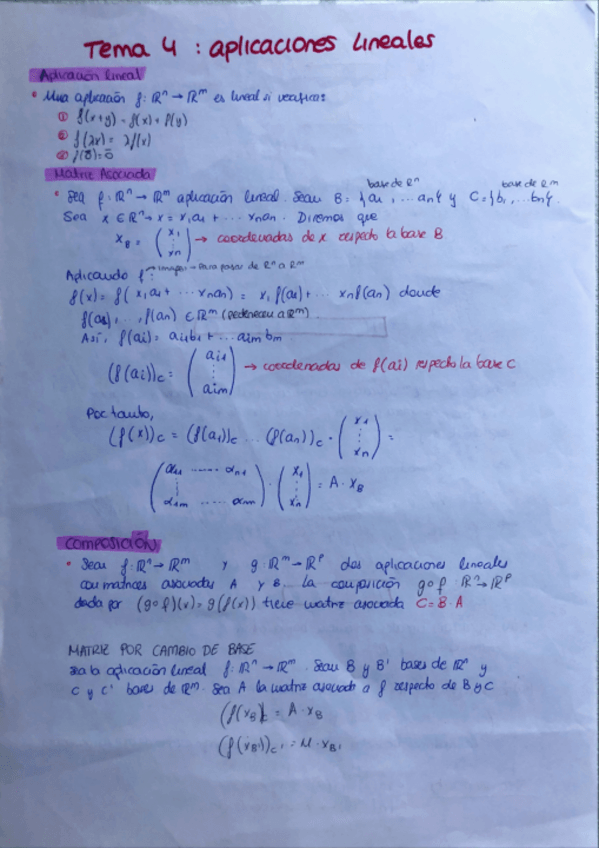 Tema 4 : aplicaciones lineales
Aplicación lineal
• Una aplicación f: ℝⁿ → ℝᵐ es lineal si verifica:
① f(x+y) = f(x) + f(y)
② f(λx) = λf(x)
③ f(0̄) = 0̄
Matriz Asociada
base de ℝⁿ base de ℝᵐ
• Sea f: ℝⁿ → ℝᵐ aplicación lineal. Sean B = {a₁, ... an} y C = {b₁, ... bn}.
Sea x ∈ ℝⁿ → x = x₁a₁ + ... xnan. Diremos que
x_B = (x₁ ⋮ xn) → coordenadas de x respecto la base B.
Aplicando f: → imagen → Para pasar de ℝⁿ a ℝᵐ
f(x) = f(x₁a₁ + ... xnan) = x₁f(a₁) + ... xnf(an) donde
f(a₁), ..., f(an) ∈ ℝᵐ (pertenecen a ℝᵐ).
Así, f(ai) = ai1b1 + ... aimbm
(f(ai))c = (ai1 ⋮ aim) → coordenadas de f(ai) respecto la base C
Por tanto,
(f(x))c = (f(a₁))c ... (f(an))c · (x₁ ⋮ xn) =
(α11 ...... αn1 ⋮ α1m ..... αnm) · (x₁ ⋮ xn) = A · x_B
COMPOSICIÓN
• Sean f: ℝⁿ → ℝᵐ y g: ℝᵐ → ℝᵖ dos aplicaciones lineales
con matrices asociadas A y B. La composición g∘f: ℝⁿ → ℝᵖ
dada por (g∘f)(x) = g(f(x)) tiene matriz asociada C = B · A
MATRIZ POR CAMBIO DE BASE
sea la aplicación lineal f: ℝⁿ → ℝᵐ. Sean B y B' bases de ℝⁿ y
C y C' bases de ℝᵐ. Sea A la matriz asociada a f respecto de B y C
(f(x_B))c = A · x_B
(f(x_B'))c' = M · x_B'